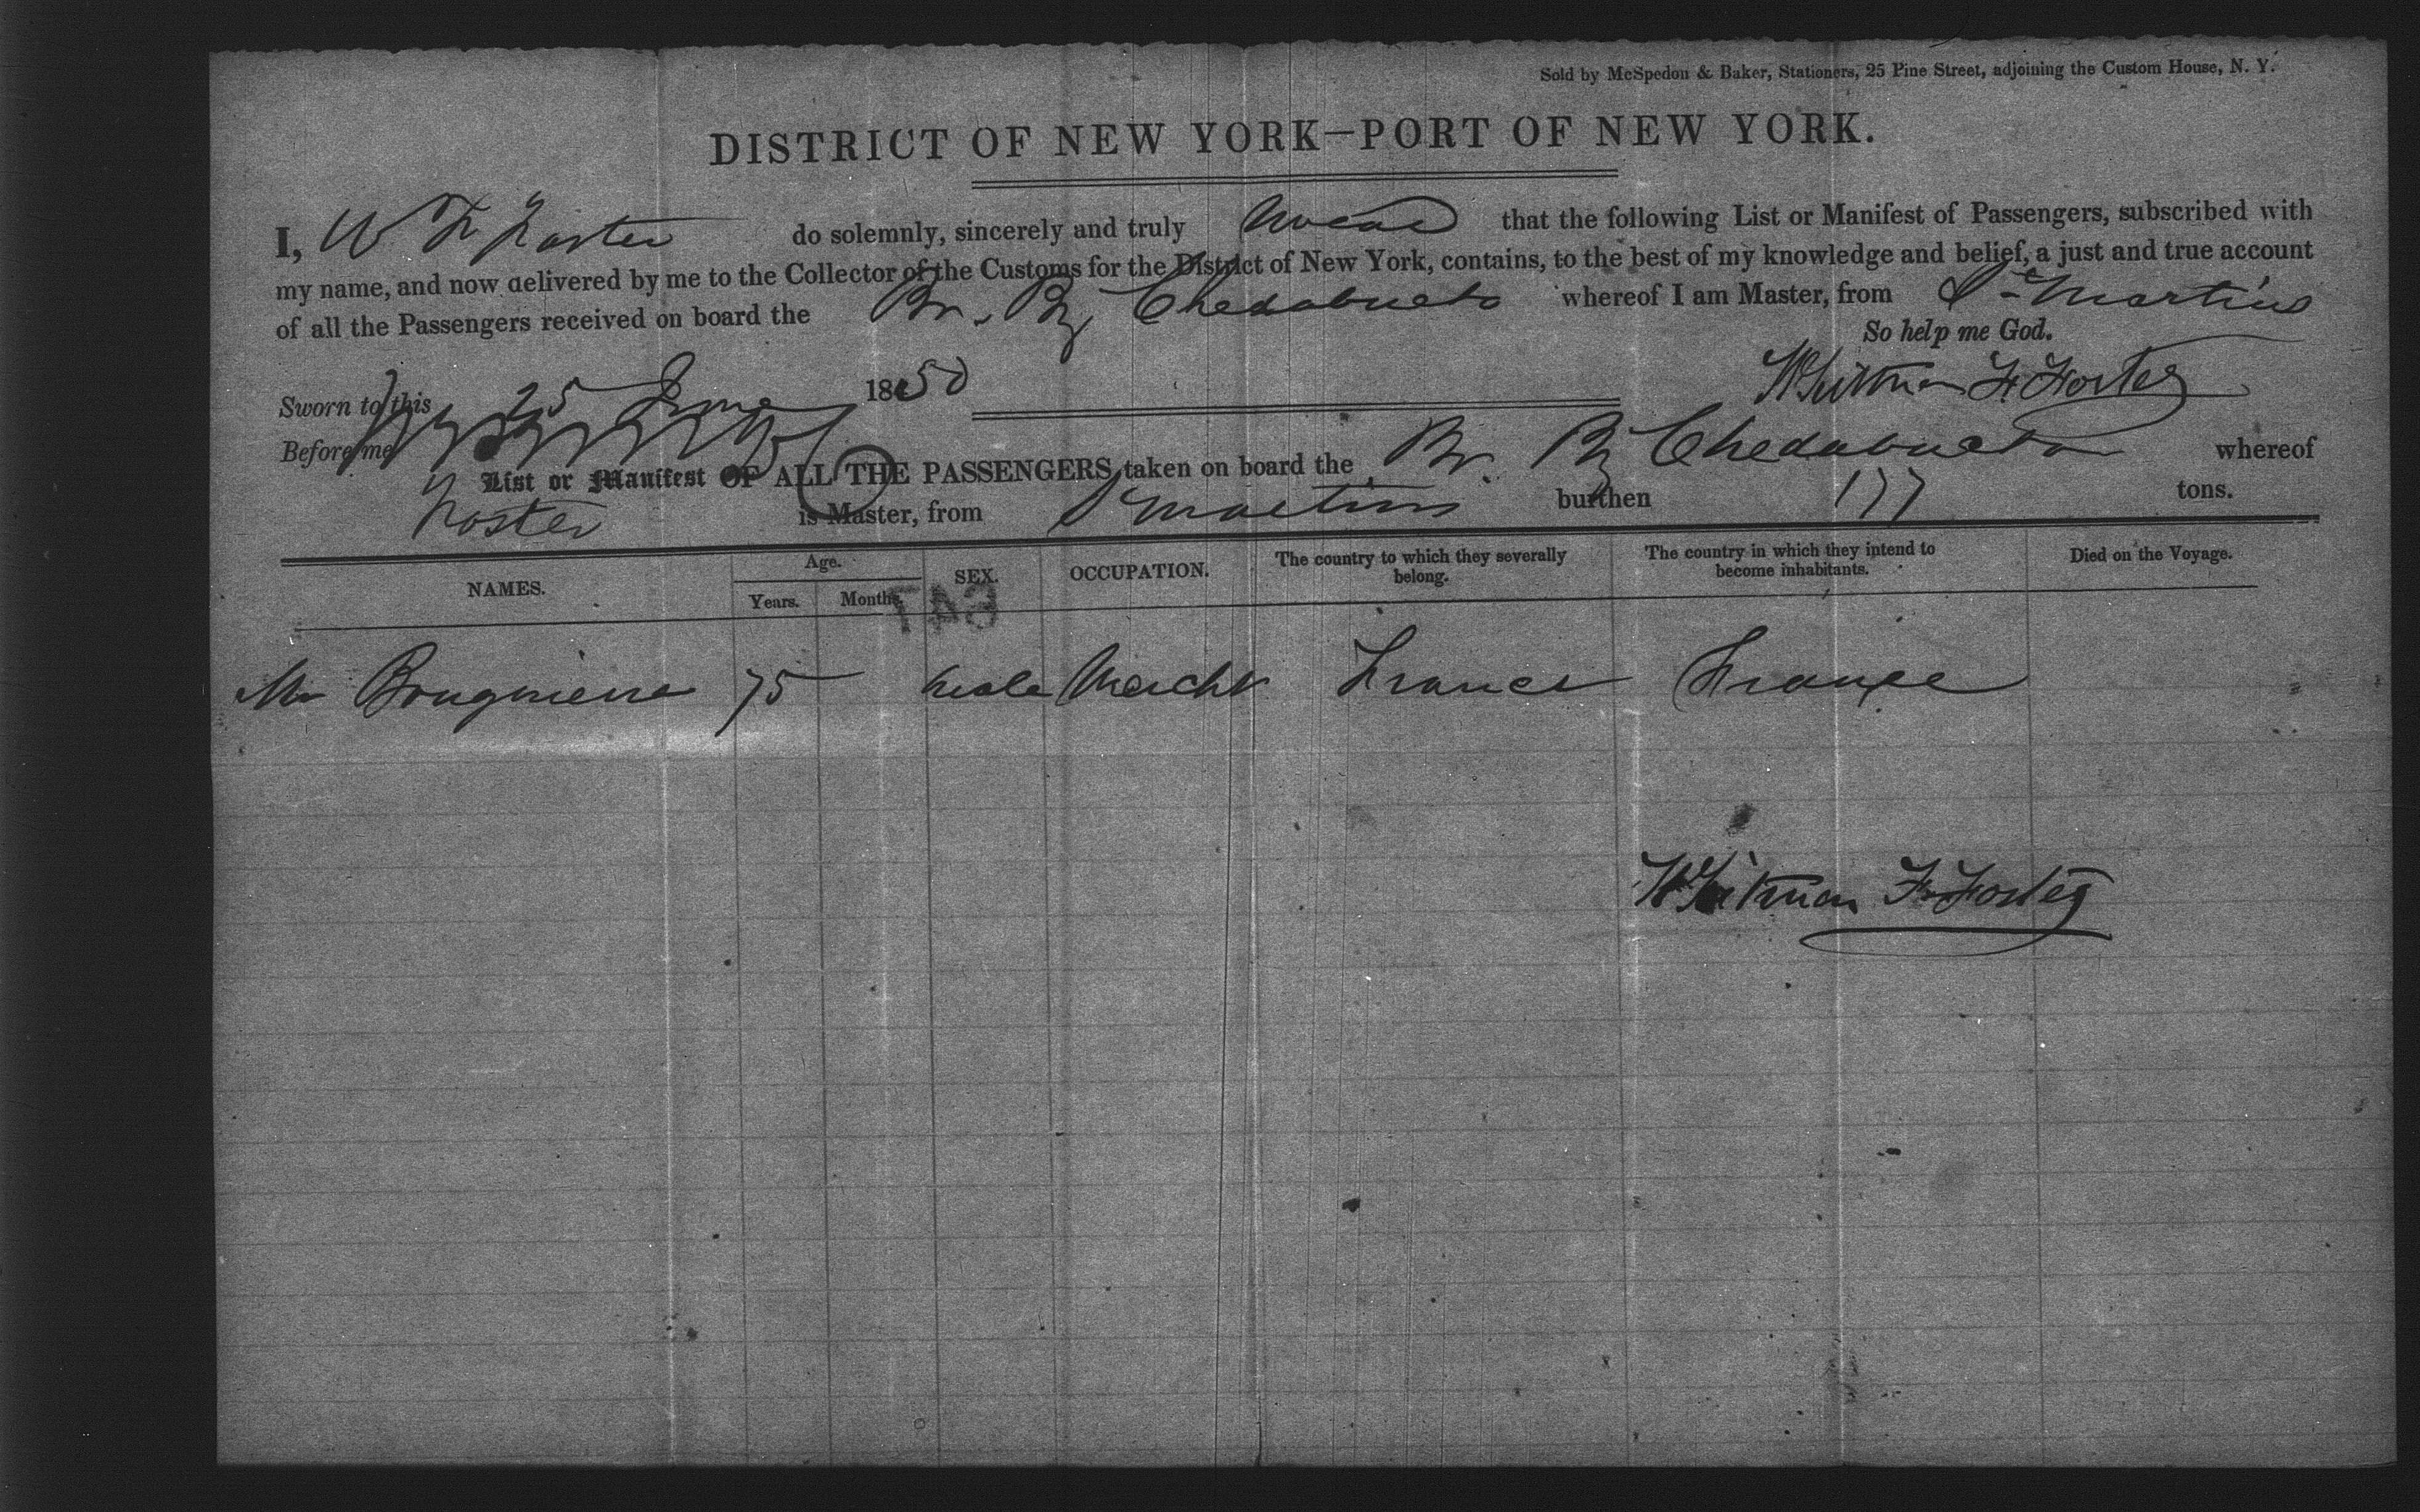 Sold by McSpedon & Baker, Stationers, 25 Pine Street, adjoining the Custom House, N. Y.
DISTRICT OF NEW YORK—PORT OF NEW YORK.
I, W F Foster do solemnly, sincerely and truly swear that the following List or Manifest of Passengers, subscribed with
my name, and now delivered by me to the Collector of the Customs for the District of New York, contains, to the best of my knowledge and belief, a just and true account
of all the Passengers received on board the Br. Bg Chedabucto whereof I am Master, from St Martins
So help me God.
Sworn to this 25 June 1850
Whitman F Foster
Before me
List or Manifest OF ALL THE PASSENGERS taken on board the Br. Bg Chedabucto whereof
Foster is Master, from St Martins burthen 177 tons.
NAMES. Age. Years. Months. SEX. OCCUPATION. The country to which they severally belong. The country in which they intend to become inhabitants. Died on the Voyage.
Mr 75 Male Mercht France France
Whitman F Foster